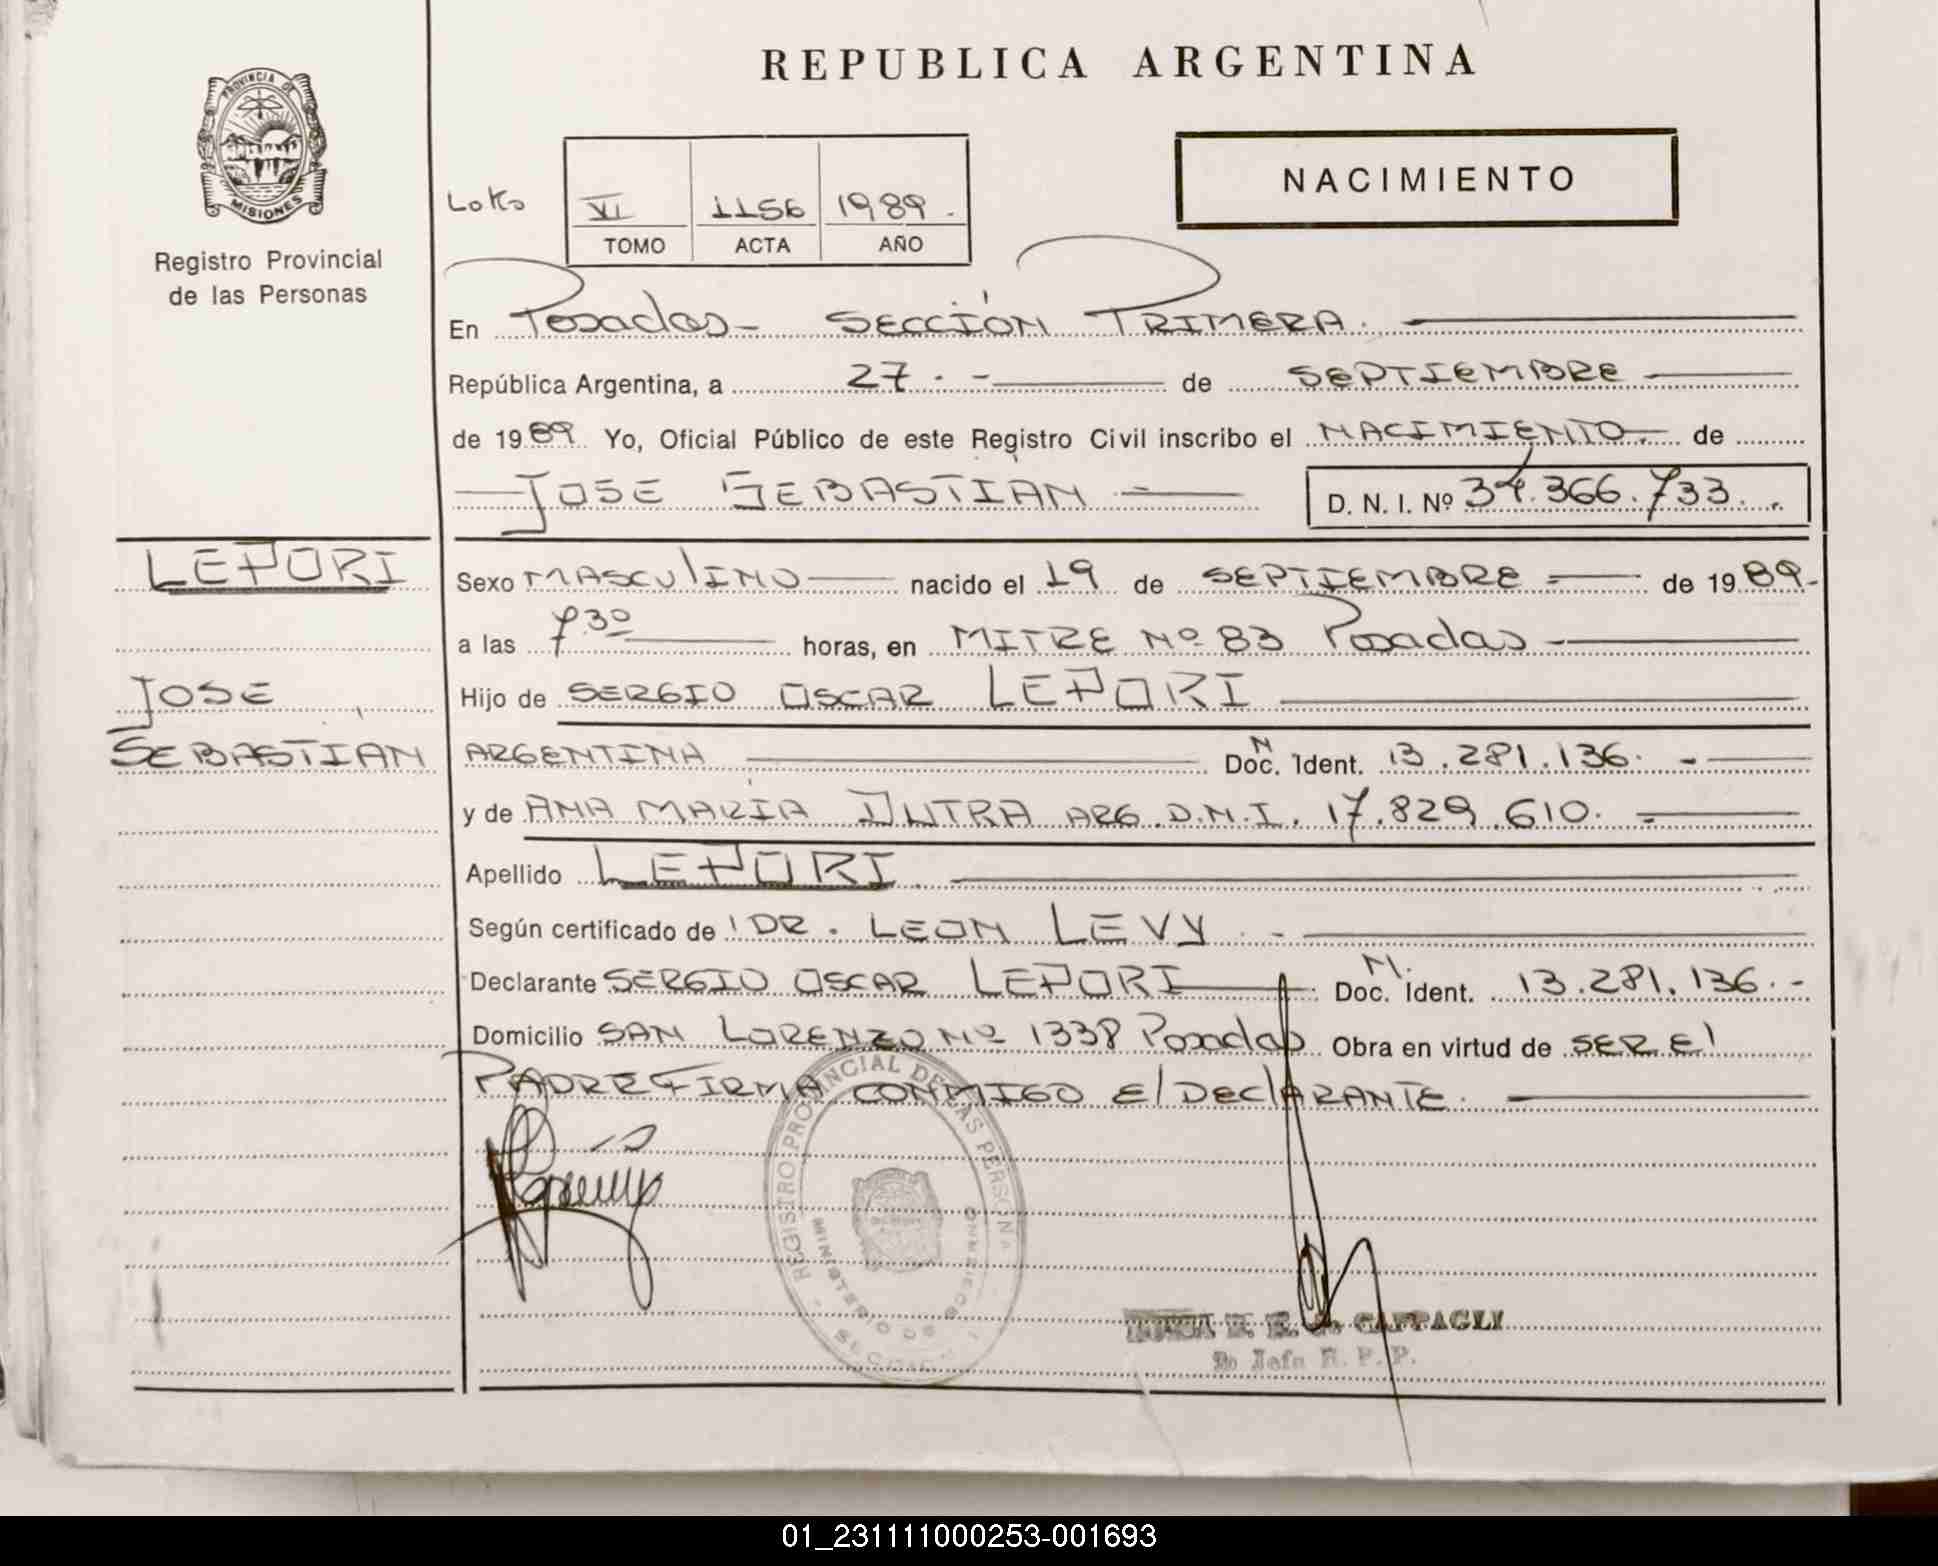 REPUBLICA ARGENTINA
PROVINCIA DE
MISIONES
Registro Provincial
de las Personas
NACIMIENTO
VI 1156 1989.
TOMO ACTA AÑO
En Posadas - SECCIÓN PRIMERA.
República Argentina, a 27. - de SEPTIEMBRE
de 1989 Yo, Oficial Público de este Registro Civil inscribo el NACIMIENTO. de
JOSE SEBASTIAN D. N. I. Nº 34.366.733.
LEPORI
JOSE
SEBASTIAN
Sexo MASCULINO nacido el 19 de SEPTIEMBRE de 1989.
a las 7.30 horas, en MITRE Nº 83 Posadas
Hijo de SERGIO OSCAR LEPORI
ARGENTINA Doc. N Ident. 13.281.136. -
y de ANA MARIA DUTRA ARG. D.N.I. 17.829.610.
Apellido LEPORI
Según certificado de DR. LEON LEVY. -
Declarante SERGIO OSCAR LEPORI Doc. N. Ident. 13.281.136. -
Domicilio SAN LORENZO Nº 1338 Posadas Obra en virtud de SER El
PADRE FIRMA CONMIGO El DEClARANTE.
REGISTRO PROVINCIAL DE LAS PERSONAS
MINISTERIO DE
R. P. P.
01_231111000253-001693